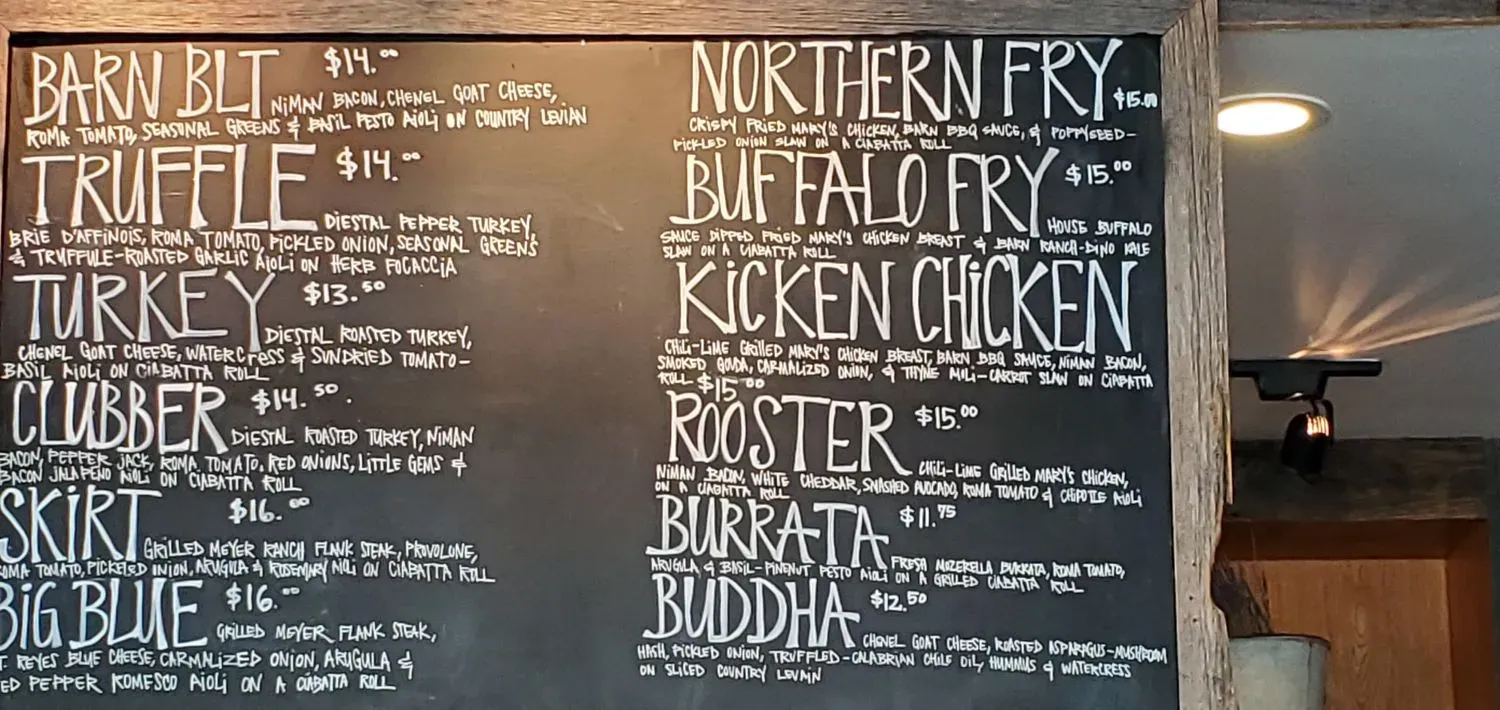 BARN BLT $14.00
NIMAN BACON, CHENEL GOAT CHEESE,
ROMA TOMATO, SEASONAL GREENS & BASIL PESTO AIOLI ON COUNTRY LEVIAN
TRUFFLE $14.00
DIESTAL PEPPER TURKEY,
BRIE D'AFFINOIS, ROMA TOMATO, PICKLED ONION, SEASONAL GREENS
& TRUFFULE-ROASTED GARLIC AIOLI ON HERB FOCACCIA
TURKEY $13.50
DIESTAL ROASTED TURKEY,
CHENEL GOAT CHEESE, WATERCRESS & SUNDRIED TOMATO-
BASIL AIOLI ON CIABATTA ROLL
CLUBBER $14.50.
DIESTAL ROASTED TURKEY, NIMAN
BACON, PEPPER JACK, ROMA TOMATO, RED ONIONS, LITTLE GEMS &
BACON JALAPENO AIOLI ON CIABATTA ROLL
SKIRT $16.00
GRILLED MEYER RANCH FLANK STEAK, PROVOLONE,
OMA TOMATO, PICKELED ONION, ARUGULA & ROSEMARY AIOLI ON CIABATTA ROLL
BIG BLUE $16.00
GRILLED MEYER FLANK STEAK,
T. REYES BLUE CHEESE, CARMALIZED ONION, ARUGULA &
ED PEPPER ROMESCO AIOLI ON A CIABATTA ROLL
NORTHERN FRY $15.00
CRISPY FRIED MARY'S CHICKEN, BARN BBQ SAUCE, & POPPYSEED-
PICKLED ONION SLAW ON A CIABATTA ROLL
BUFFALO FRY $15.00
HOUSE BUFFALO
SAUCE DIPPED FRIED MARY'S CHICKEN BREAST & BARN RANCH-DINO KALE
SLAW ON A CIABATTA ROLL
KICKEN CHICKEN
CHILI-LIME GRILLED MARY'S CHICKEN BREAST, BARN BBQ SAUCE, NIMAN BACON,
SMOKED GOUDA, CARMALIZED ONION, & THYME AIOLI-CARROT SLAW ON CIABATTA
ROLL $15.00
ROOSTER $15.00
CHILI-LIME GRILLED MARY'S CHICKEN,
NIMAN BACON, WHITE CHEDDAR, SMASHED AVOCADO, ROMA TOMATO & CHIPOTLE AIOLI
ON A CIABATTA ROLL
BURRATA $11.75
FRESH MOZERELLA BURRATA, ROMA TOMATO,
ARUGULA & BASIL-PINENUT PESTO AIOLI ON A GRILLED CIABATTA ROLL
BUDDHA $12.50
CHENEL GOAT CHEESE, ROASTED ASPARAGUS-MUSHROOM
HASH, PICKLED ONION, TRUFFLED-CALABRIAN CHILE OIL, HUMMUS & WATERCRESS
ON SLICED COUNTRY LEVAIN